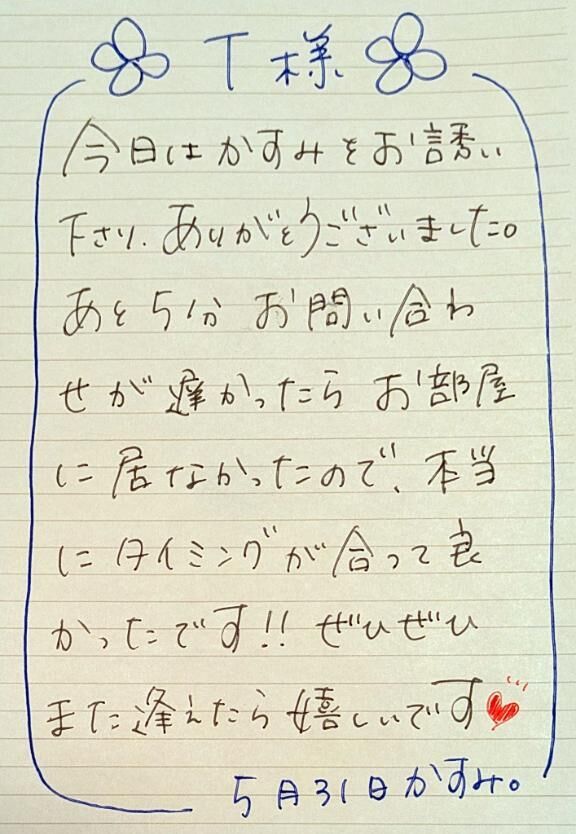 T様
今日はかすみをお誘い
下さり、ありがとうございました。
あと5分 お問い合わ
せが遅かったら お部屋
に居なかったので、本当
にタイミングが合って良
かったです!! ぜひぜひ
また逢えたら嬉しいです
5月31日かすみ。